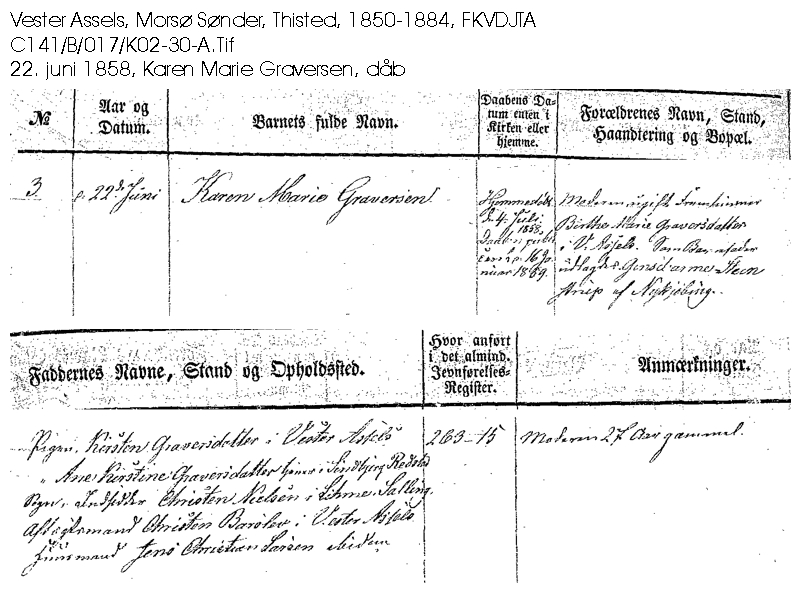 Vester Assels, Morsø Sønder, Thisted, 1850-1884, FKVDJTA
C141/B/017/K02-30-A.Tif
22. juni 1858, Karen Marie Graversen, dåb
№
Aar og
Datum.
Barnets fulde Navn.
Daabens Da-
tum enten i
Kirken eller
hjemme.
Forældrenes Navn, Stand,
Haandtering og Bopæl.
3
22de Juni
Karen Marie Graversen
Hjemmedøbt
d. 4. Juli
1858.
16 Ja-
nuar 1859.
Moderen ugift Fruentimmer
Birthe Marie Graversdatter
i V. Assels. Som Barnefader
udlagdes Gensdarme Steen
strup af Nykjøbing.
Faddernes Navne, Stand og Opholdssted.
Hvor anført
i det almind.
Jevnførelses-
Register.
Anmærkninger.
Pigen Kirsten Graversdatter i Vester Assels
" Ane Kirstine Graversdatter tjener i Sindbjerg Redsted
Sogn, Indsidder Christen Nielsen i Lihme Salling,
Aftægtsmand Christen i Vester Assels
Huusmand Jens Christian Larsen ibidem
263-15
Moderen 27 Aar gammel.